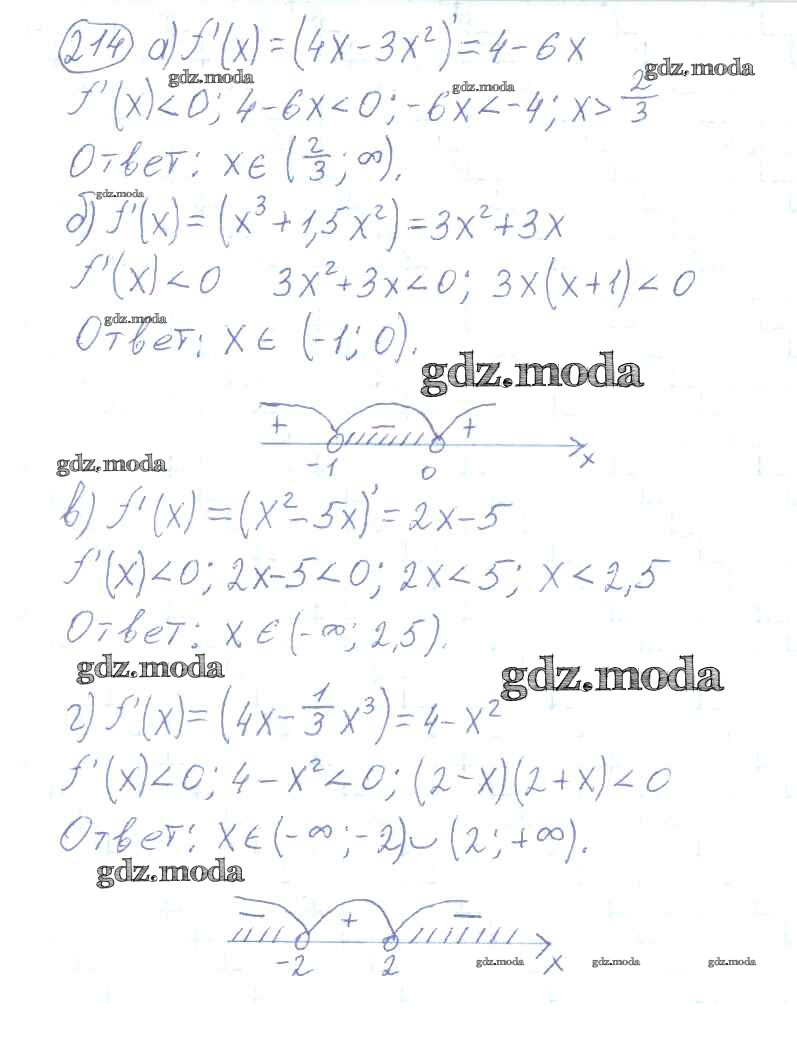 214 а) f'(x) = (4x - 3x²)' = 4 - 6x
gdz.moda gdz.moda gdz.moda
f'(x) < 0; 4 - 6x < 0; -6x < -4; x > 2/3
Ответ: x ∈ (2/3; ∞).
gdz.moda
б) f'(x) = (x³ + 1,5x²) = 3x² + 3x
f'(x) < 0 3x² + 3x < 0; 3x(x + 1) < 0
gdz.moda
Ответ: x ∈ (-1; 0).
gdz.moda
+ - +
-1 0 x
gdz.moda
в) f'(x) = (x² - 5x)' = 2x - 5
f'(x) < 0; 2x - 5 < 0; 2x < 5; x < 2,5
Ответ: x ∈ (-∞; 2,5).
gdz.moda gdz.moda
г) f'(x) = (4x - 1/3 x³) = 4 - x²
f'(x) < 0; 4 - x² < 0; (2 - x)(2 + x) < 0
Ответ: x ∈ (-∞; -2) ∪ (2; +∞).
gdz.moda
- + -
-2 2 x
gdz.moda gdz.moda gdz.moda